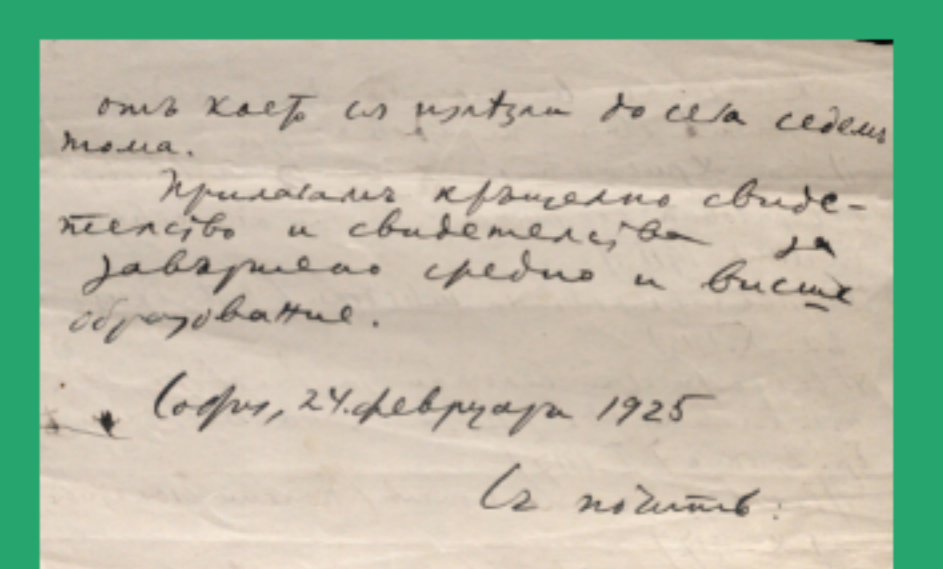 отъ коетo сѫ излѣзли до сега седемь
тома.
Прилагамъ кръщелно свиде-
телство и свидетелства за
завършено средно и висше
образование.
София, 24. февруари 1925
Съ почить: